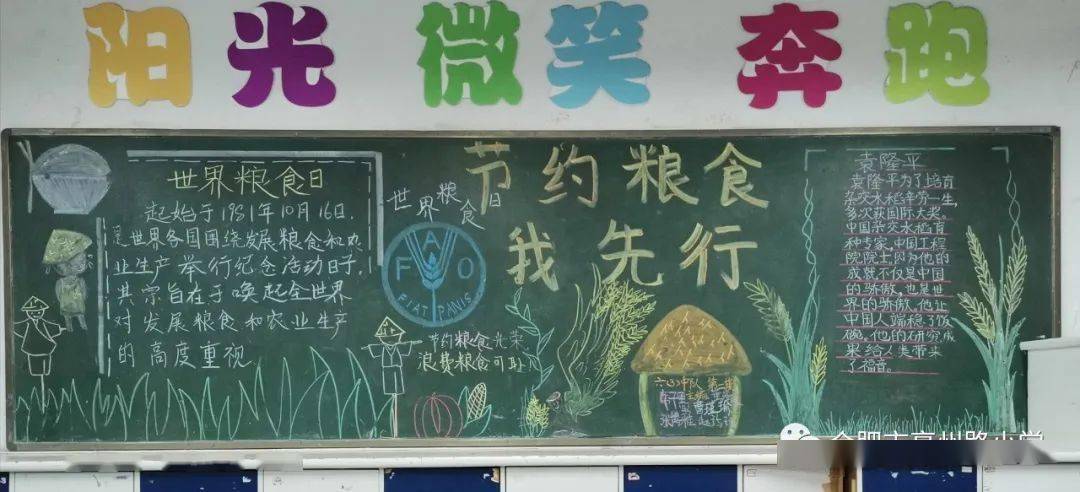 阳光 微笑 奔跑
世界粮食日
起始于1981年10月16日.
是世界各国围绕发展粮食和农
业生产举行纪念活动日子,
其宗旨在于唤起全世界
对发展粮食和农业生产
的高度重视
世界粮食日
FAO
FIAT PANIS
节约粮食
我先行
节约粮食光荣
浪费粮食可耻
六(3)中队 第二
袁隆平
袁隆平为了培育
杂交水稻辛劳一生,
多次获国际大奖。
中国杂交水稻育
种专家,中国工程
院院士因为他的
成就不仅是中国
的骄傲,也是世
界的骄傲,他让
中国人端稳了饭
碗,他的研究成
果给人类带来
了福音。
合肥市亳州路小学